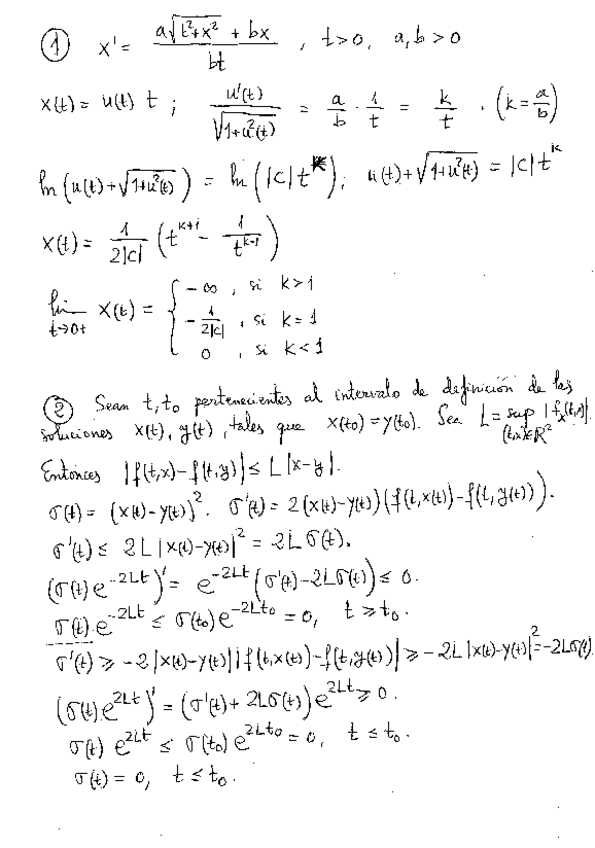 ① x' = (a√(t²+x²) + bx) / bt , t>0, a,b >0
x(t) = u(t) t ; u'(t) / √(1+u²(t)) = a/b · 1/t = k/t . (k = a/b)
ln(u(t)+√(1+u²(t))) = ln(|c|t^k); u(t)+√(1+u²(t)) = |c|t^k
x(t) = 1/(2|c|) (t^(k+1) − 1/t^(k-1))
lim t→0+ x(t) = { −∞ , si k>1
−1/(2|c|) , si k=1
0 , si k<1
② Sean t, t₀ pertenecientes al intervalo de definición de las
soluciones x(t), y(t), tales que x(t₀) = y(t₀). Sea L = sup (t,x)∈ℝ² |f_x(t,x)|.
Entonces |f(t,x)−f(t,y)| ≤ L|x−y|.
σ(t) = (x(t)−y(t))². σ'(t) = 2(x(t)−y(t))(f(t,x(t))−f(t,y(t))).
σ'(t) ≤ 2L|x(t)−y(t)|² = 2Lσ(t).
(σ(t)e^(-2Lt))' = e^(-2Lt)(σ'(t)−2Lσ(t)) ≤ 0.
σ(t)e^(-2Lt) ≤ σ(t₀)e^(-2Lt₀) = 0, t ≥ t₀.
σ'(t) ≥ −2|x(t)−y(t)||f(t,x(t))−f(t,y(t))| ≥ −2L|x(t)−y(t)|² = −2Lσ(t).
(σ(t)e^(2Lt))' = (σ'(t)+2Lσ(t))e^(2Lt) ≥ 0.
σ(t) e^(2Lt) ≤ σ(t₀)e^(2Lt₀) = 0, t ≤ t₀.
σ(t) = 0, t ≤ t₀.